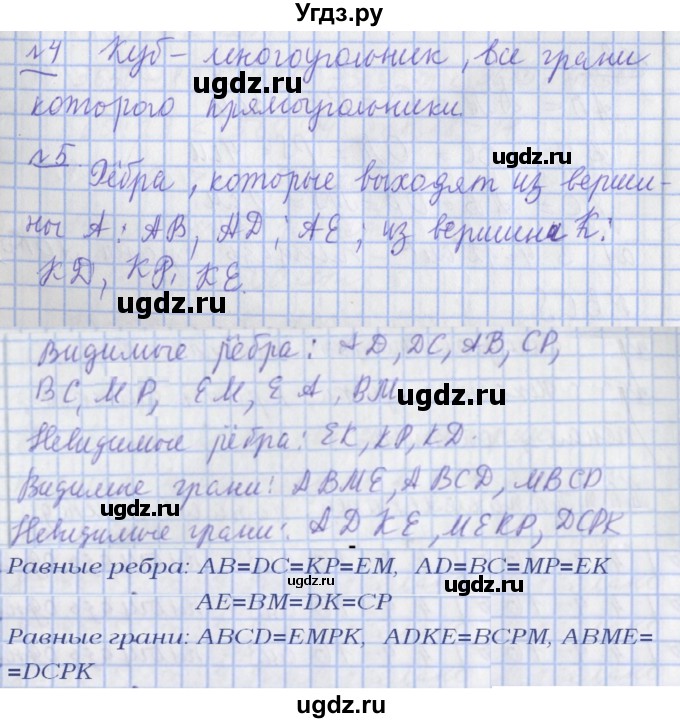 Угдз.ру
№4 Куб – многоугольник, все грани
которого прямоугольники
ugdz.ru
ugdz.ru
№5.
Рёбра, которые выходят из верши-
ны А: АВ, АD, АЕ, из вершина К:
КD, КР, КЕ.
ugdz.ru
Видимые рёбра: АD, DC, АВ, СР,
ВС, МР, ЕМ, ЕА, ВМ
ugdz.ru
Невидимые рёбра: ЕК, КР, КD.
Видимые грани: АВМЕ, АВСD, МВСР
ugdz.ru
Невидимые грани: АDКЕ, МЕКР, DСРК
Равные ребра: AB=DC=KP=EM, AD=BC=MP=EK
ugdz.ru
ugdz.ru
AE=BM=DK=CP
Равные грани: ABCD=EMPK, ADKE=BCPM, ABME=
=DCPK
ugdz.ru